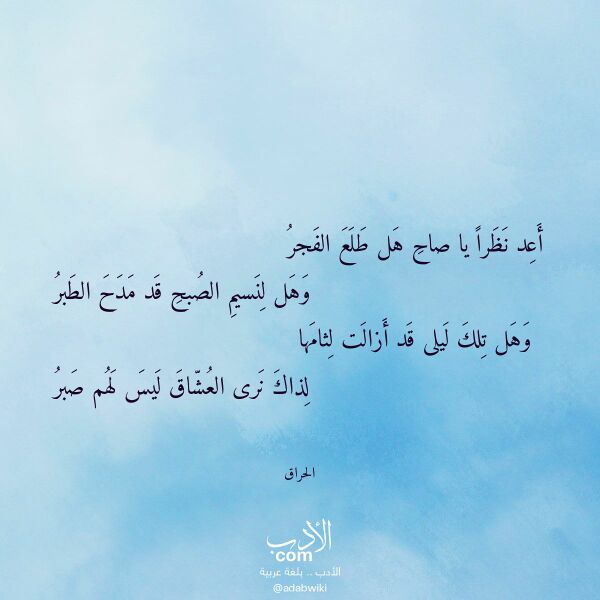 أَعِد نَظَراً يا صاحِ هَل طَلَعَ الفَجرُ
وَهَل لِنَسيمِ الصُبحِ قَد مَدَحَ الطَبرُ
وَهَل تِلكَ لَيلى قَد أَزالَت لِثامَها
لِذاكَ نَرى العُشّاقَ لَيسَ لَهُم صَبرُ
الحراق
الأدب
com
الأدب .. بلغة عربية
@adabwiki